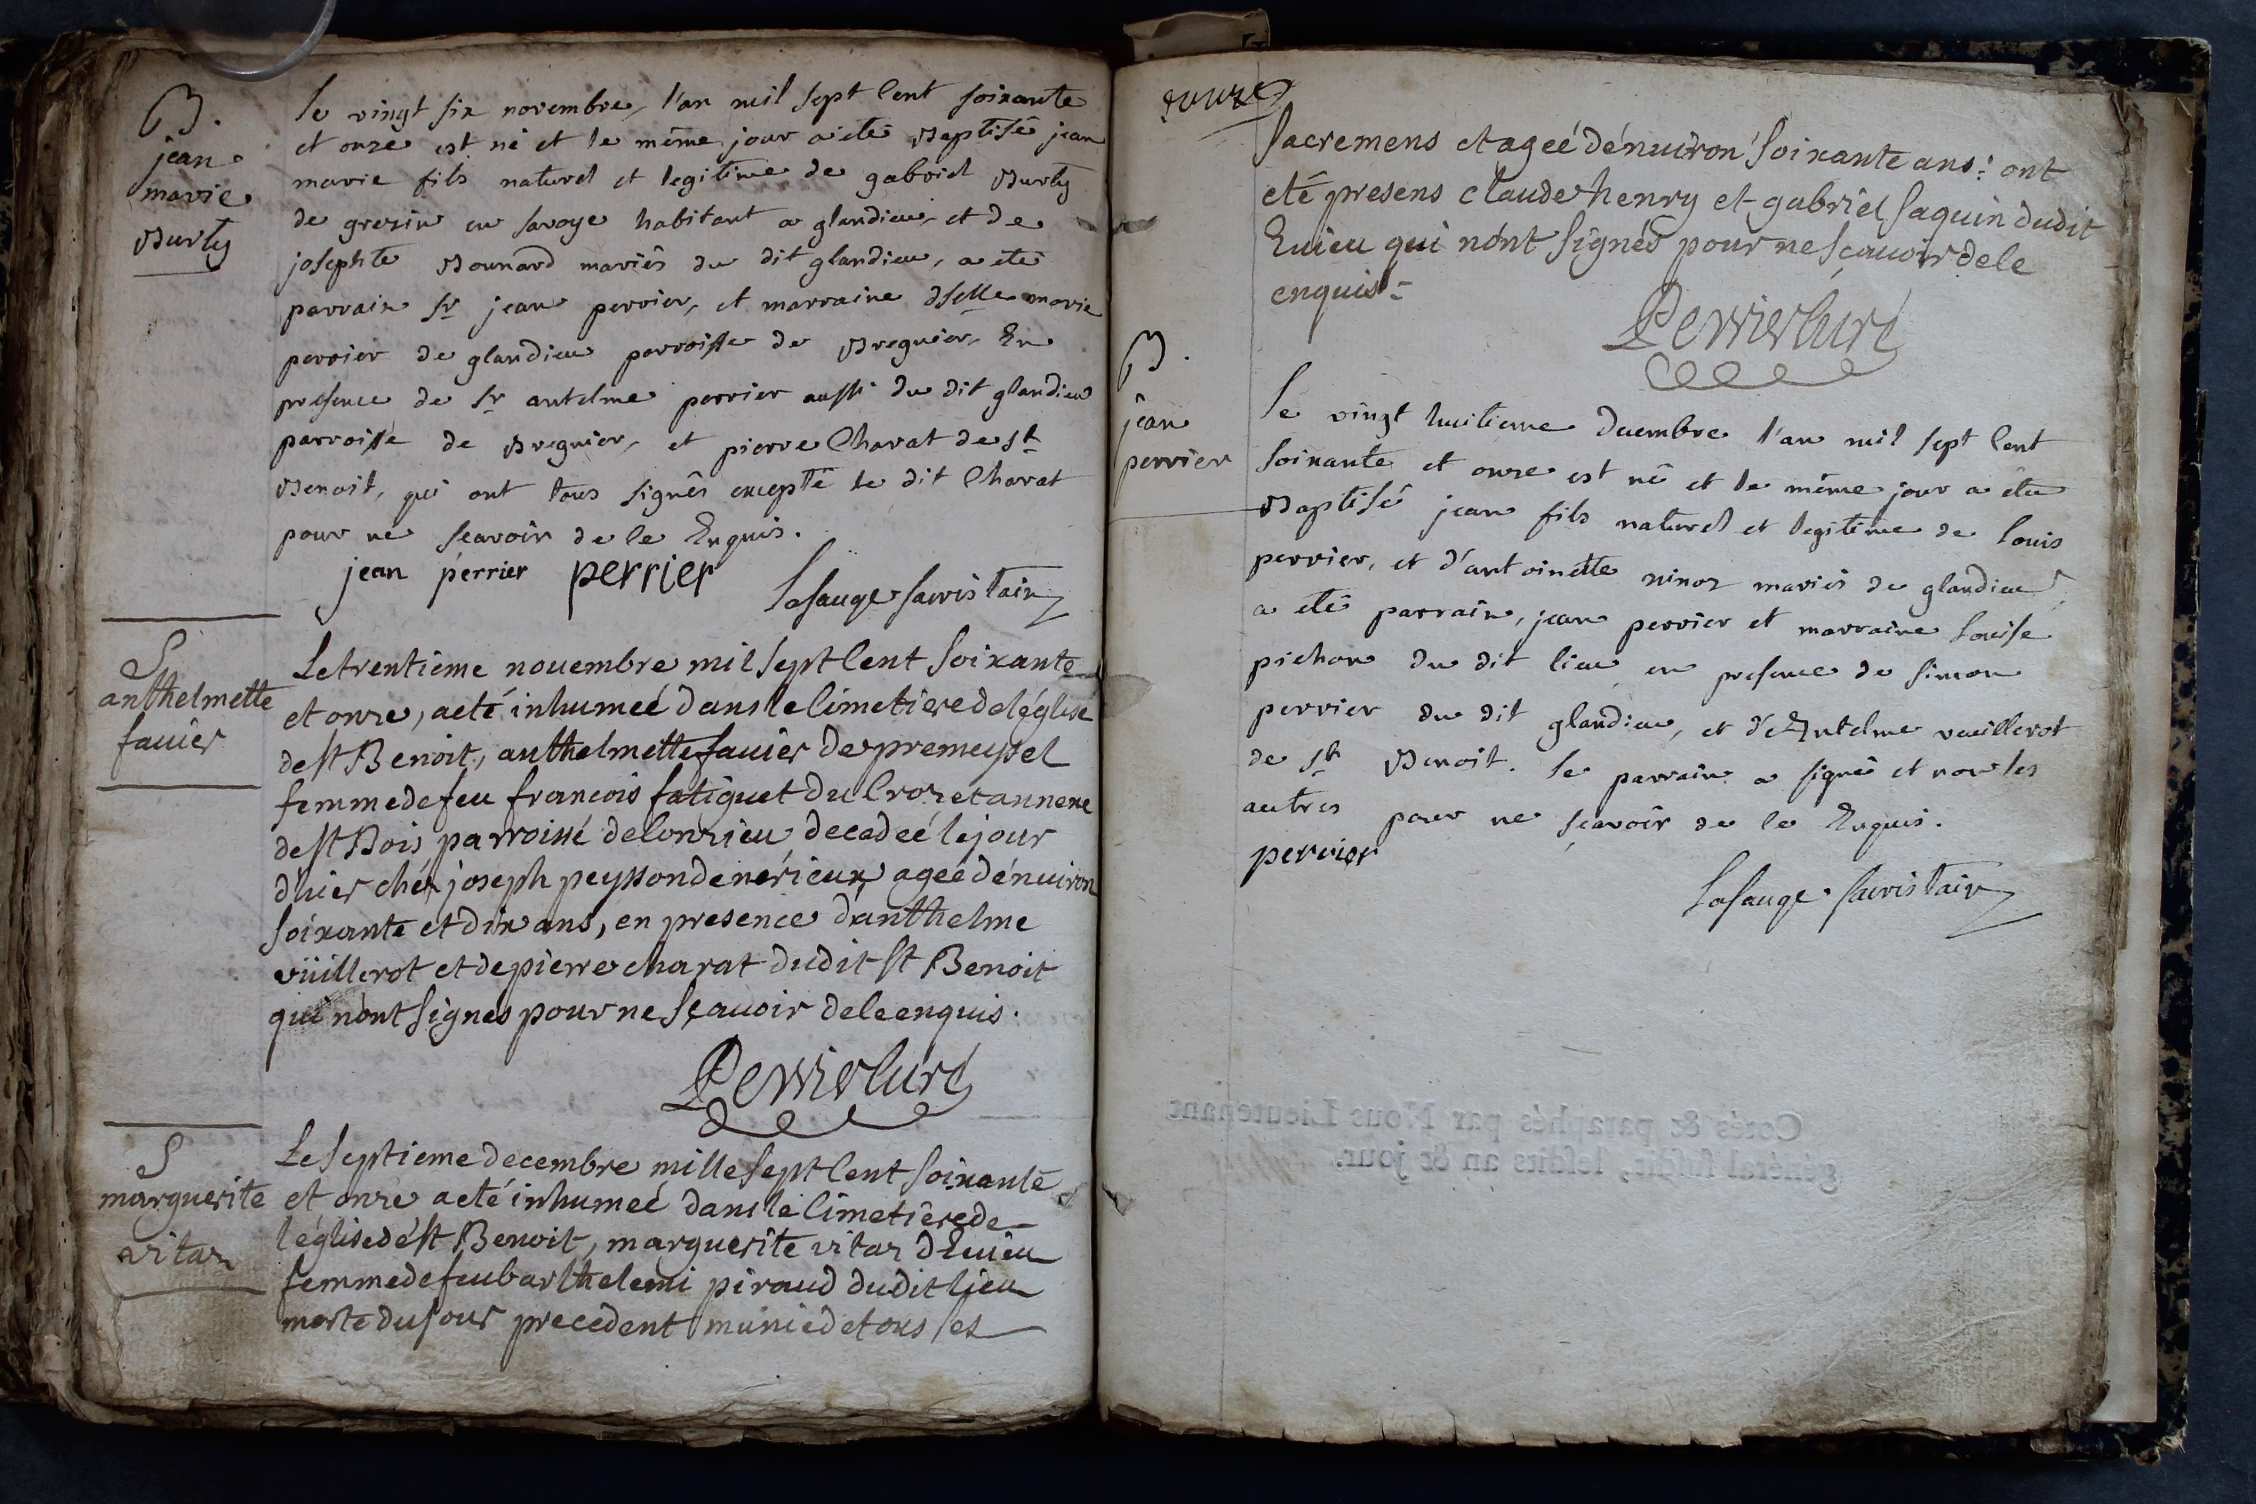 B.
jean
marie
Burty
le vingt six novembre, l'an mil sept Cent soixante
et onze est né et le même jour a été Baptisé jean
marie fils naturel et legitime de gabriel Burty
de grezin en savoye habitant a glandieu, et de
josephte Bounard mariés du dit glandieu, a été
parrain Sr jean perrier, et marraine dselle marie
perrier de glandieu parroisse de Bregnier, En
presence de Sr antelme perrier aussi du dit glandieu
parroisse de Bregnier, et pierre Charat de st
Benoit, qui ont tous signés excepté le dit Charat
pour ne scavoir de le Enquis.
jean perrier perrier
Lasauge sacristain
S
anthelmette
favier
Le trentieme novembre mil sept Cent soixante
et onze, a eté inhumeé dans le Cimetiere de l'église
de st Benoit, anthelmette favier de premeyzel
femme de feu francois fatiguet du Croz et annexe
de st Bois parroisse de Conzieu, decedeé le jour
d'hier chéz joseph peysson de nérieux ageé d'énuiron
soixante et dix ans, en presence d'anthelme
vüillerot et de pierre charat dudit st Benoit
qui n'ont signés pour ne sçavoir de le enquis.
Perrier Curé
S
marguerite
vitoz
Le septieme decembre mille sept Cent soixante
et onze a eté inhumeé dans le Cimetiere de
l'église de st Benoit, marguerite vitoz d'Evieu
femme de feu barthelemi piraud dudit lieu
morte du jour precedent munie de tous ses
douze
sacremens et ageé d'énuiron soixante ans: ont
eté presens claude henry et gabriel saquin dudit
Evieu qui n'ont signés pour ne sçavoir de le
enquis.
Perrier Curé
B.
jean
perrier
le vingt huitieme decembre l'an mil sept Cent
soixante et onze est né et le même jour a été
Baptisé jean fils naturel et legitime de louis
perrier, et d'antoinette ninoz mariés de glandieu,
a été parrain, jean perrier et marraine Louise
pichon du dit lieu en presence de simon
perrier du dit glandieu, et d'Antelme vuillerot
de st Benoit. le parrain a signé et non les
autres pour ne sçavoir de le Enquis.
perrier
Lasauge sacristain
Cotés & paraphés par Nous Lieutenant
général susdit, lesdits an & jour.